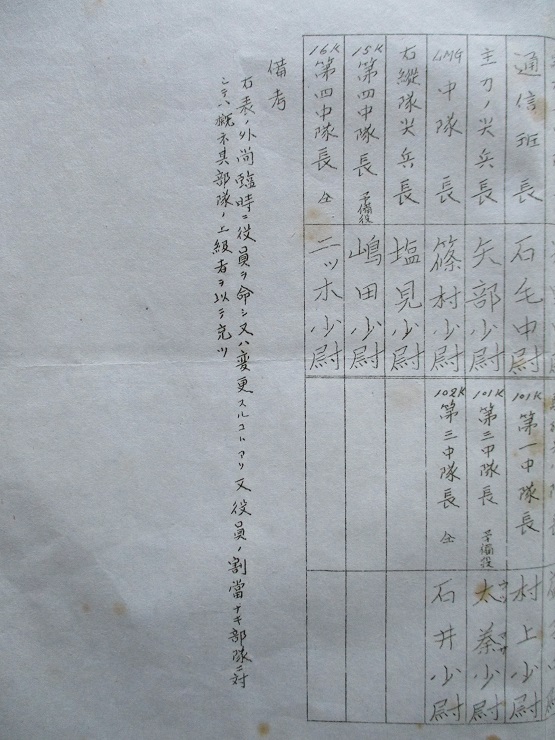 通信班長 石毛中尉 101K 第一中隊長 村上少尉
主力ノ尖兵長 矢部少尉 101K 第三中隊長 予備役 太 少尉
LMG 中隊長 篠村少尉 102K 第三中隊長 仝 石井少尉
右縦隊尖兵長 塩見少尉
15K 第四中隊長 予備役 嶋田少尉
16K 第四中隊長 仝 二ツ木少尉
備考
右表ノ外尚臨時ニ役員ヲ命シ又ハ変更スルコトアリ又役員ノ割當ナキ部隊ニ対
シテハ概ネ其部隊ノ上級者ヲ以テ充ツ